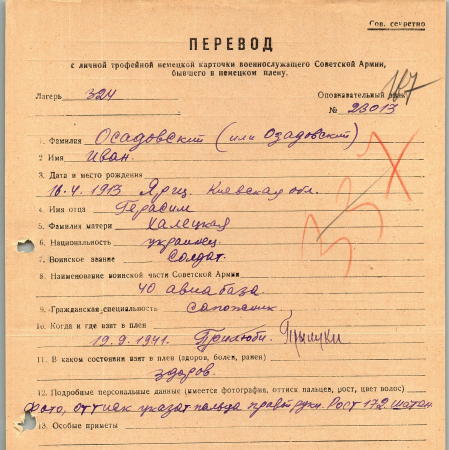 Сов. секретно
ПЕРЕВОД
с личной трофейной немецкой карточки военнослужащего Советской Армии,
бывшего в немецком плену.
Лагерь 324 Опознавательный знак
№ 23013
1. Фамилия Осадовский (или Озадовский)
2 Имя Иван.
3. Дата и место рождения
16.4.1913 Киевская обл.
4. Имя отца Герасим
5. Фамилия матери Халецкая
6. Национальность украинец.
7. Воинское звание Солдат.
8. Наименование воинской части Советской Армии
40 авиабаза.
9. Гражданская специальность сапожник
10. Когда и где взят в плен
19.9.1941. Прилюби. Прилуки
11. В каком состоянии взят в плен (здоров, болен, ранен)
здоров.
12. Подробные персональные данные (имеется фотография, оттиск пальцев, рост, цвет волос)
Фото, оттиск указат. пальца прав. руки. Рост 172. шатен.
13. Особые приметы